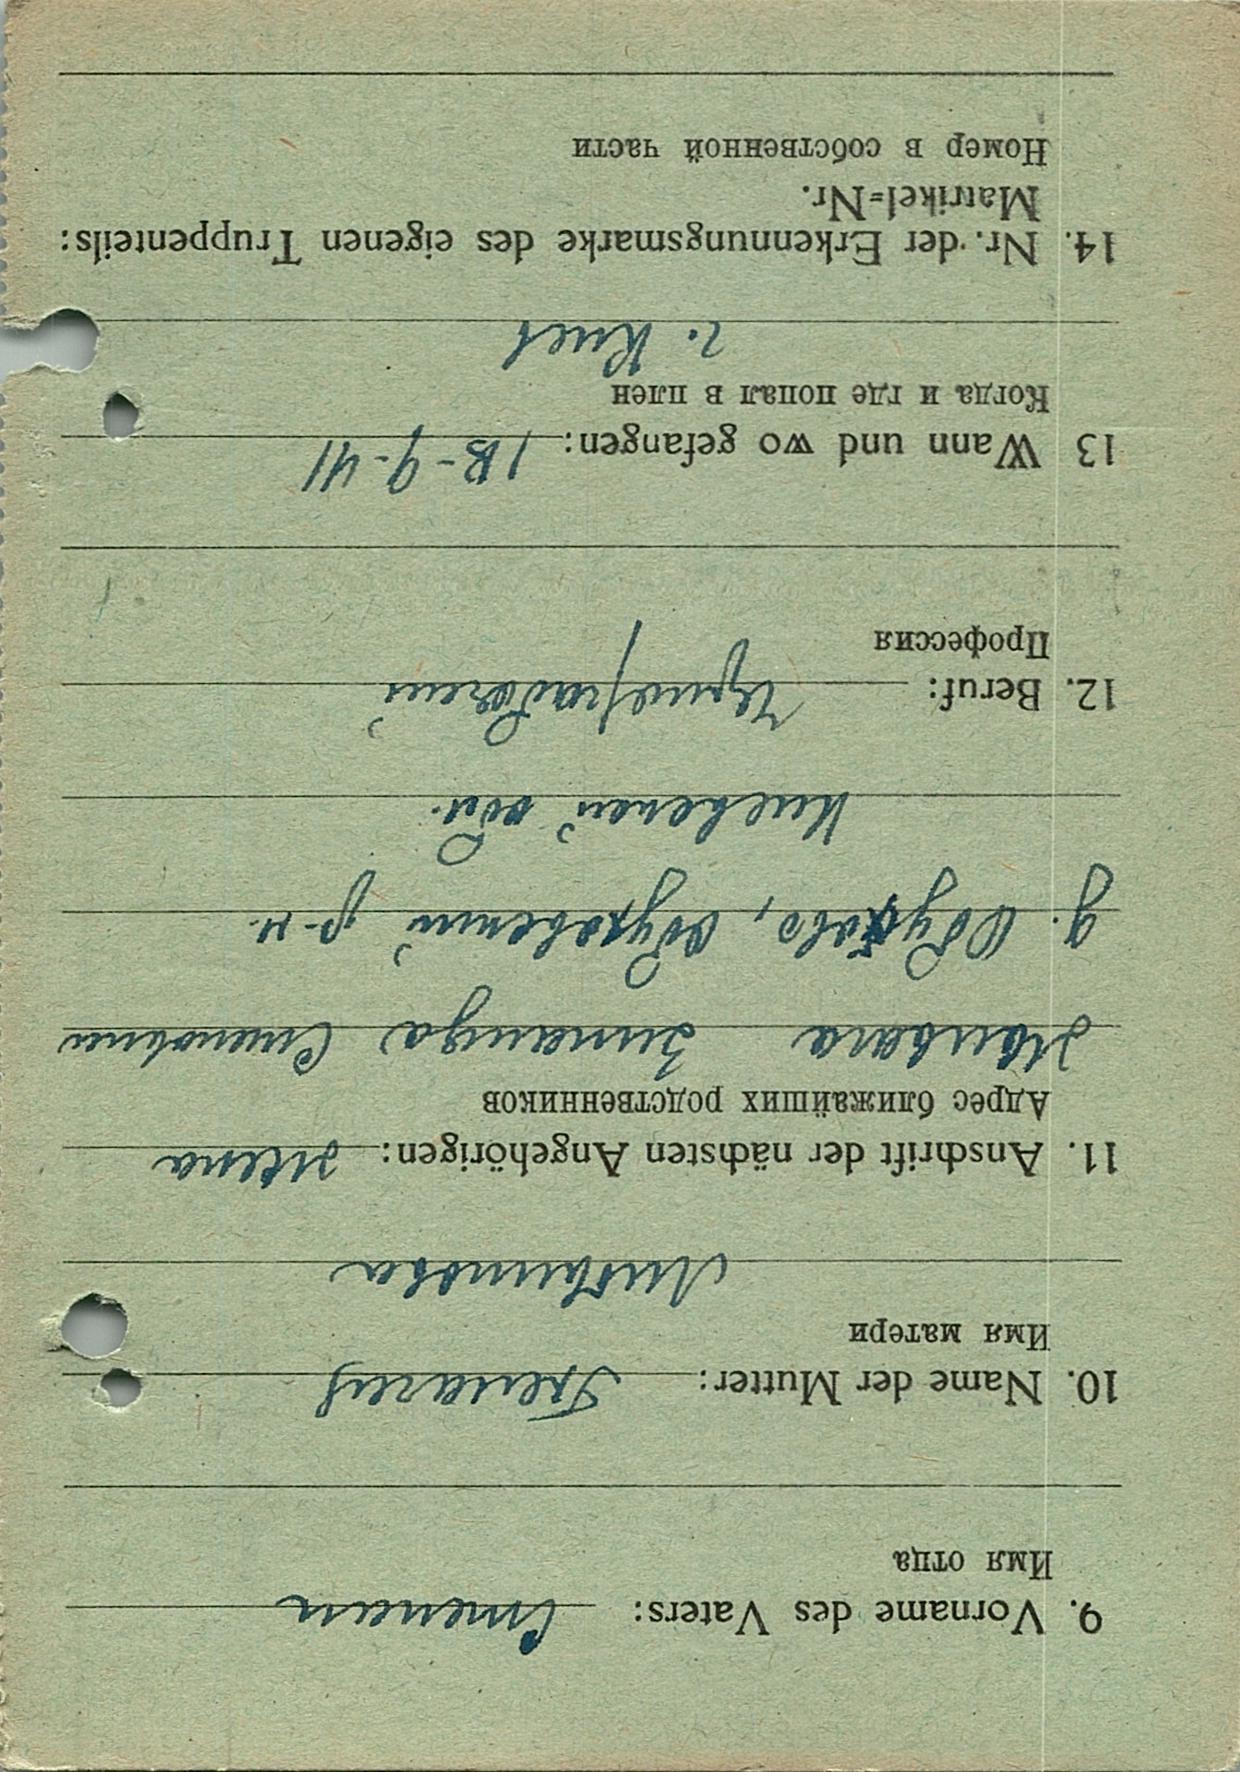 9. Vorname des Vaters: Степан
Имя отца
10. Name der Mutter:
Имя матери
Литвинова
11. Anschrift der nächsten Angehörigen: жена
Адрес ближайших родственников
Зинаида Степановна
д. Обухово, Обуховский р-н.
Киевской обл.
12. Beruf: Чернорабочий
Профессия
13 Wann und wo gefangen: 18-9-41
Когда и где попал в плен
г. Киев
14. Nr. der Erkennungsmarke des eigenen Truppenteils:
Matrikel=Nr.
Номер в собственной части